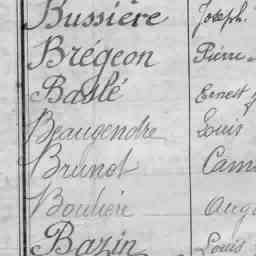 Bussière Joseph.
Brégeon Pierre
Baslé Ernest
Beaugendre Louis
Brunot
Bouhéré
Bazin Louis